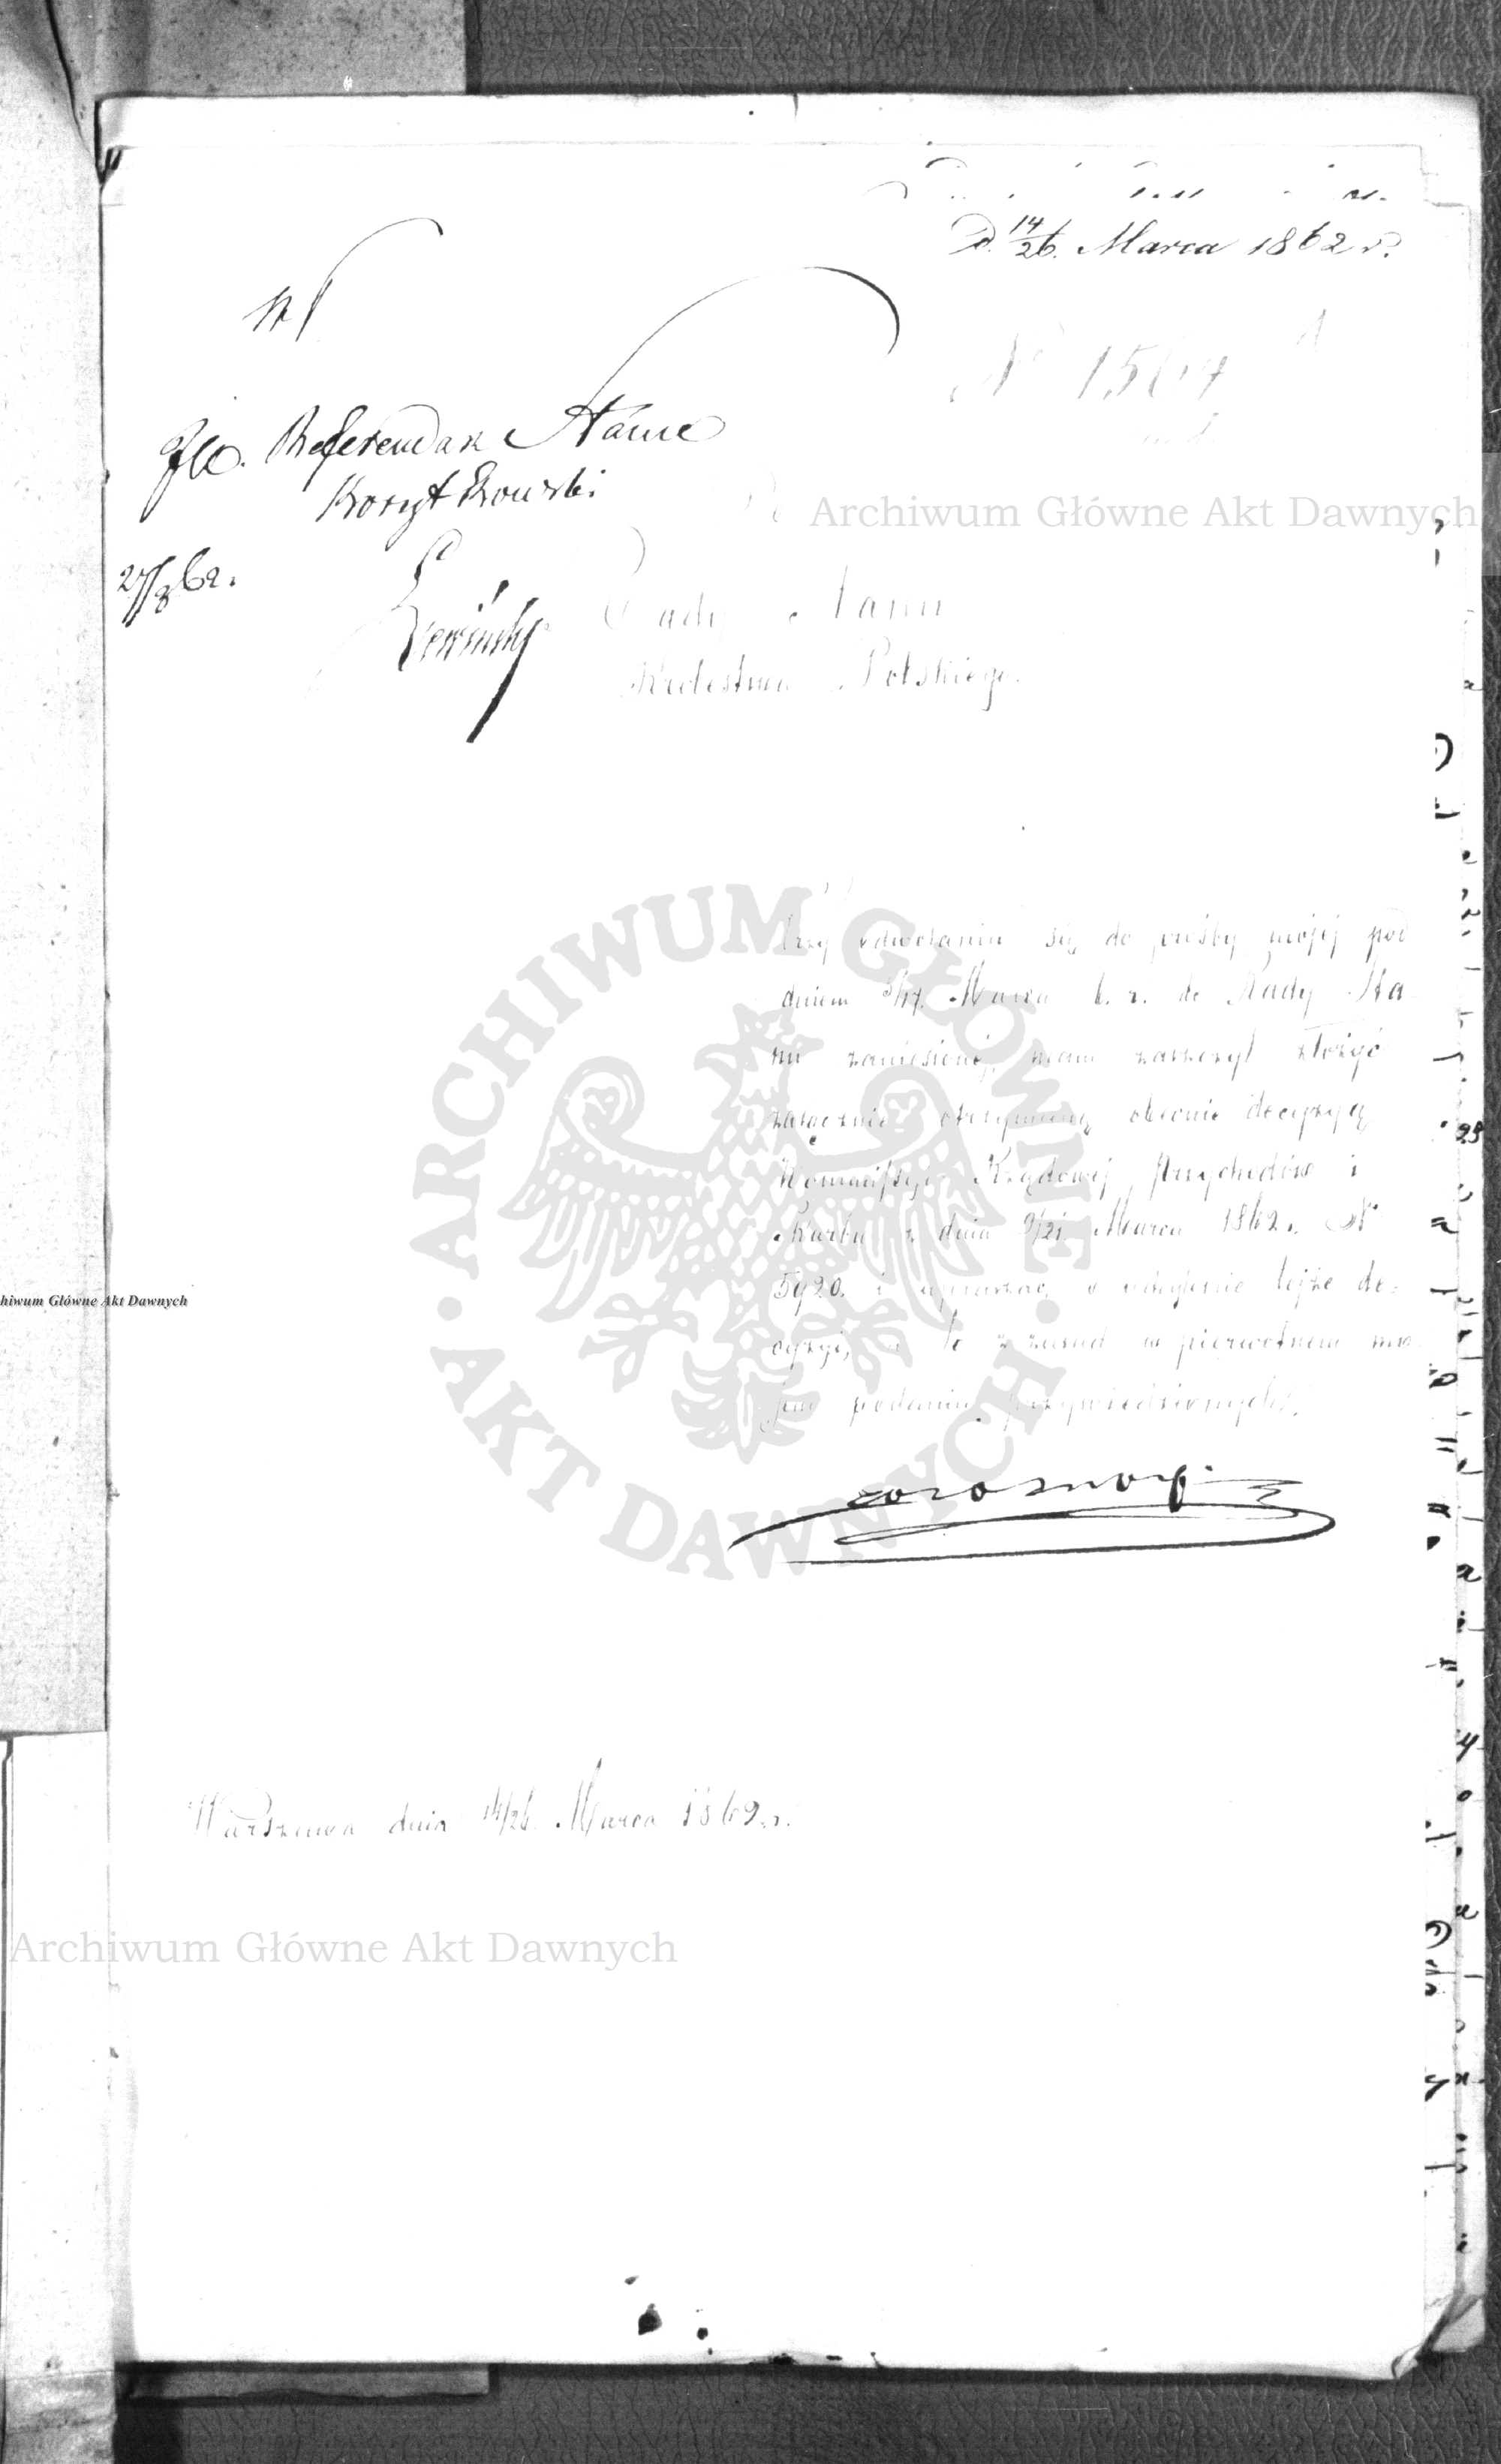 D. 14/26. Marca 1862 r.
N 1567
JW. Referendarz Stanu
Korytkowski
27/3 62.
Rady Stanu
Królestwa Polskiego.
Przy odwołaniu się do prośby mojej pod
dniem 5/17. Marca b. r. do Rady Sta
nu zaniesionej, mam zaszczyt złożyć
załącznie otrzymaną obecnie decyzyą
Kommissyi Rządowej Przychodów i
Skarbu z dnia 9/21. Marca 1862 r. N
5920. i upraszać o uchylenie tejże de-
cyzyi, a to z zasad w pierwotnem mo
jem podaniu przywiedzionych.
Warszawa dnia 14/26. Marca 1862 r.
Archiwum Główne Akt Dawnych
ARCHIWUM GŁÓWNE AKT DAWNYCH
hiwum Główne Akt Dawnych
Archiwum Główne Akt Dawnych